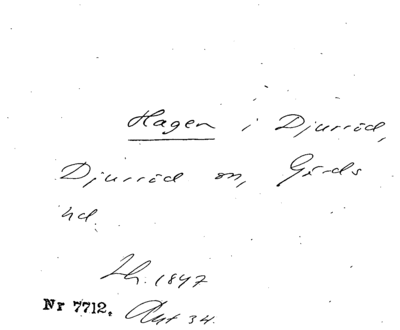 Hagen i Djurröd,
Djurröd sn, Gärds
hd.
Lh. 1847
Nr 7712. Akt 34.